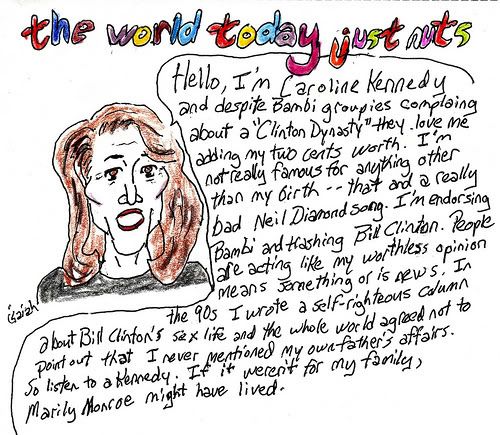 the world today just nuts
Hello, I'm Caroline Kennedy
and despite Bambi groupies complaing
about a "Clinton Dynasty" they love me
adding my two cents worth. I'm
not really famous for anything other
than my birth -- that and a really
bad Neil Diamond song. I'm endorsing
Bambi and trashing Bill Clinton. People
are acting like my worthless opinion
means something or is news. In
the 90s I wrote a self-righteous column
about Bill Clinton's sex life and the whole world agreed not to
point out that I never mentioned my own father's affairs.
So listen to a Kennedy. If it weren't for my family,
Marily Monroe might have lived.
isaiah